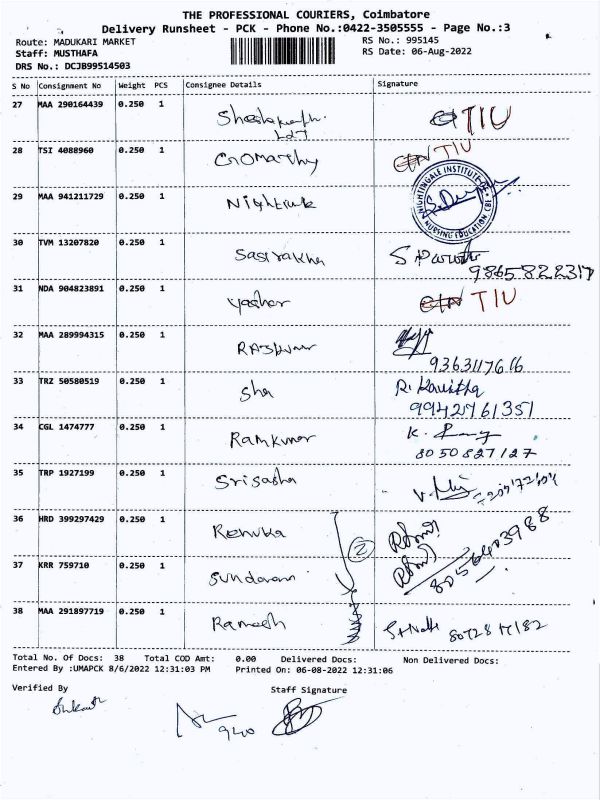 THE PROFESSIONAL COURIERS, Coimbatore
Delivery Runsheet - PCK - Phone No.:0422-3505555 - Page No.:3
Route: MADUKARI MARKET
RS No.: 995145
Staff: MUSTHAFA
RS Date: 06-Aug-2022
DRS No.: DCJB99514503
S No Consignment No Weight PCS Consignee Details Signature
27 MAA 290164439 0.250 1 TIU
28 TSI 4088960 0.250 1 Gomathy TIU
29 MAA 941211729 0.250 1 NIGHTINGALE INSTITUTE OF NURSING EDUCATION CBE
30 TVM 13207820 0.250 1
9865822317
31 NDA 904823891 0.250 1 TIU
32 MAA 289994315 0.250 1 Rajkumar
9363117616
33 TRZ 50580519 0.250 1 Sha R. Kavitha
9942761351
34 CGL 1474777 0.250 1 Ramkumar K.
8050827127
35 TRP 1927199 0.250 1 Srisasha
36 HRD 399297429 0.250 1 Renuka 2
37 KRR 759710 0.250 1 Sundaram 8056403988
38 MAA 291897719 0.250 1 Ramesh
Total No. Of Docs: 38 Total COD Amt: 0.00 Delivered Docs: Non Delivered Docs:
Entered By :UMAPCK 8/6/2022 12:31:03 PM Printed On: 06-08-2022 12:31:06
Verified By Staff Signature
940